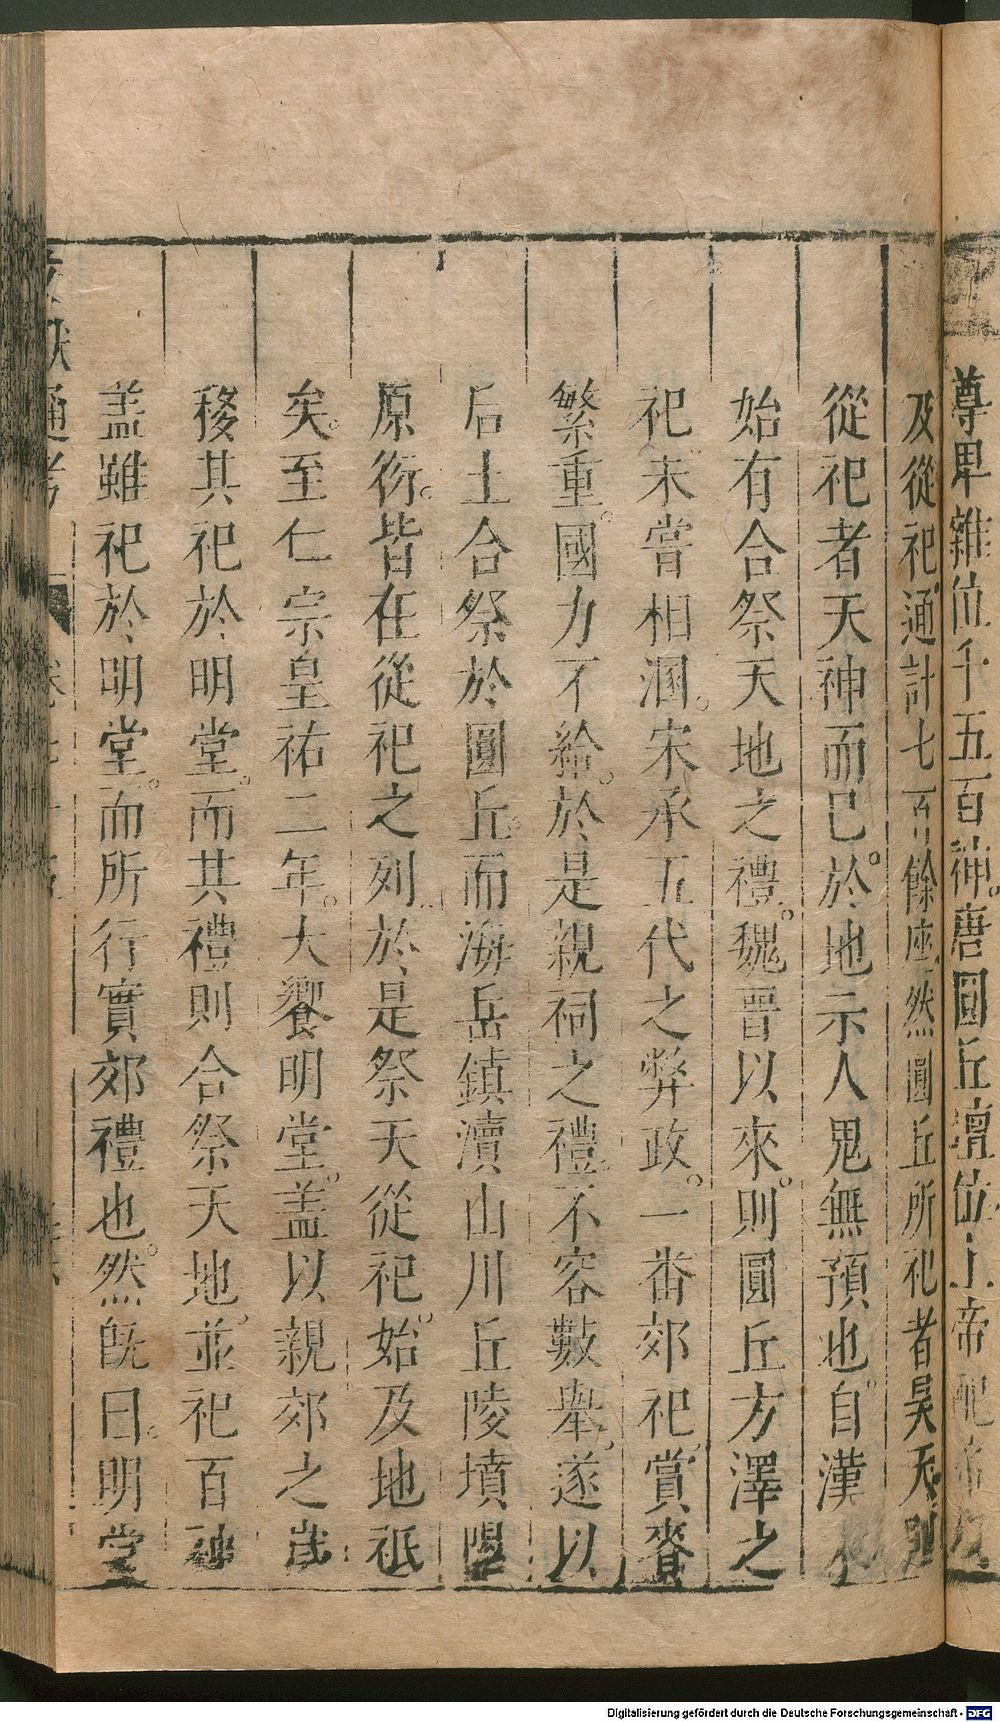 尊卑雜位千五百神。唐圓丘壇位上帝配帝
及從祀通計七百餘座然圓丘所祀者昊天則
從祀者天神而已。於地示人鬼無預也。自漢
始有合祭天地之禮。魏晋以來。則圓丘方澤之
祀未嘗相溷。宋承五代之弊政。一番郊祀。賞賚
繁重。國力不給。於是親祠之禮。不容數舉。遂以
后土合祭於圓丘。而海岳鎮瀆山川丘陵墳隰
原衍。皆在從祀之列。於是祭天從祀。始及地祇
矣。至仁宗皇祐二年。大饗明堂。盖以親郊之歲
移其祀於明堂。而其禮則合祭天地。並祀百神
盖雖祀於明堂。而所行實郊禮也。然既曰。明堂
文獻通考
Digitalisierung gefördert durch die Deutsche Forschungsgemeinschaft - DFG